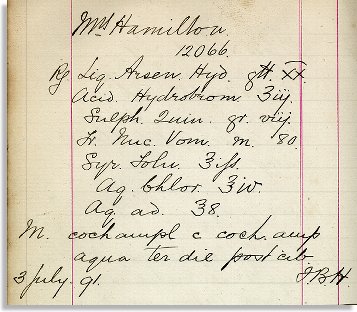 Mrs Hamilton
12066.
Rx Liq. Arsen. Hyd. gtt. XX.
Acid. Hydrobrom ʒiij.
Sulph. Quin. gr. viij.
Tr. Nuc. Vom. m. 80.
Syr. Tolu. ʒiss
Aq. Chlor. ʒiv.
Aq. ad. ℥8.
M. coch ampl c coch. amp
aqua ter die post cib
3 July 91. JBH